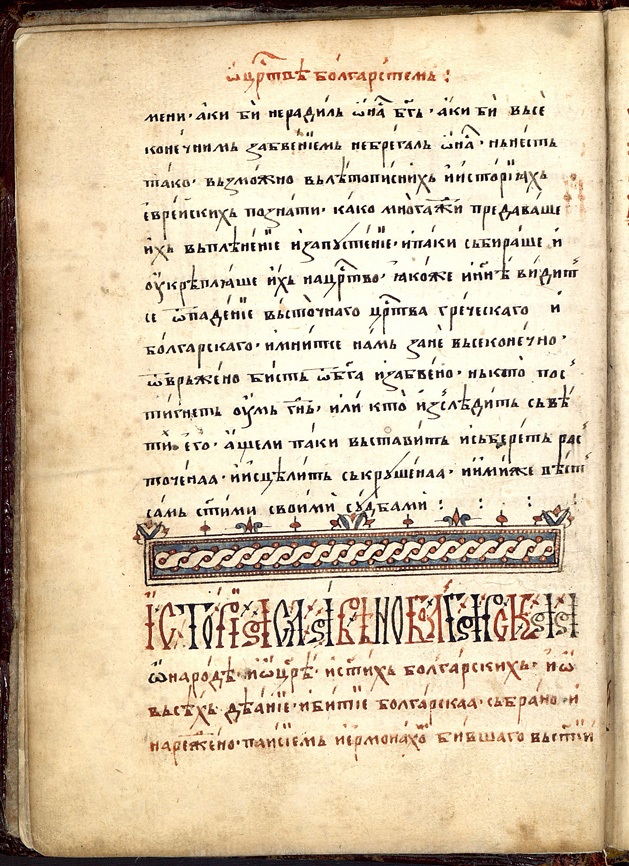 ѽцр҃твѣ болгарстемь :
мени· а҆ки би нерадиль ѽна̑ бг҃ь · а҆ки би всѐ
конечнимь забвенїемь небрегаль ѽна̑ · нънѣсть
тако· възможно вълѣтописнихъ иисторїахъ
еврейскихъ познати· како многажди предаваше
ихъ въплѣненїе изапустенїе· ипаки събираше и
оукрѣплꙗше ихъ нацр҃тво· ꙗкоже ин҃нѣ видит
се ѿпаденїе въсточнаго цр҃тва греческаго и
болгарскаго· имнитсе намь зане въсеконечно·
ѿвръжено бисть ѿбг҃а изабвено· нъкто пос
тигнеть оумь гн҃ь· или кто изслѣдить съвѣ
ти его· ащели паки въставить исъбереть рас
точенаа· иисцѣлить съкрушенаа· иимиже вѣсть
самь ст҃ими своими судбами :
їсторїа славѣноболгарскаа
ѽнародѣ· иѽцр҃ѣ· истихъ болгарскихъ· иѽ
въсѣхъ дѣанїе· ибитїе болгарскаа· събрано· и
нарежено· паисїемь їермонахо бившаго въст҃ѣй